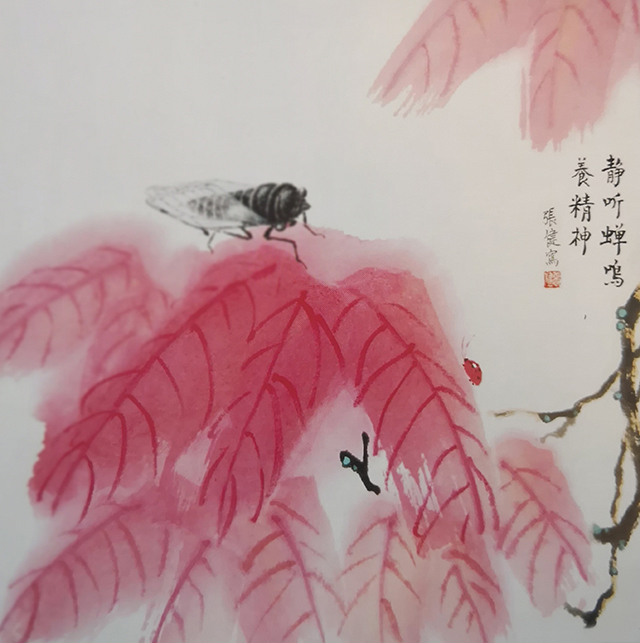 静听蝉鸣
养精神
張健寫